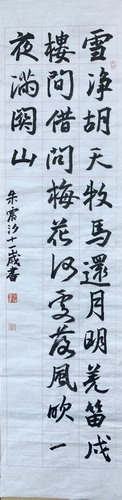 雪净胡天牧馬還月明羌笛戍
樓間借問梅花何處落風吹一
夜满關山
朱震汐十一歲書